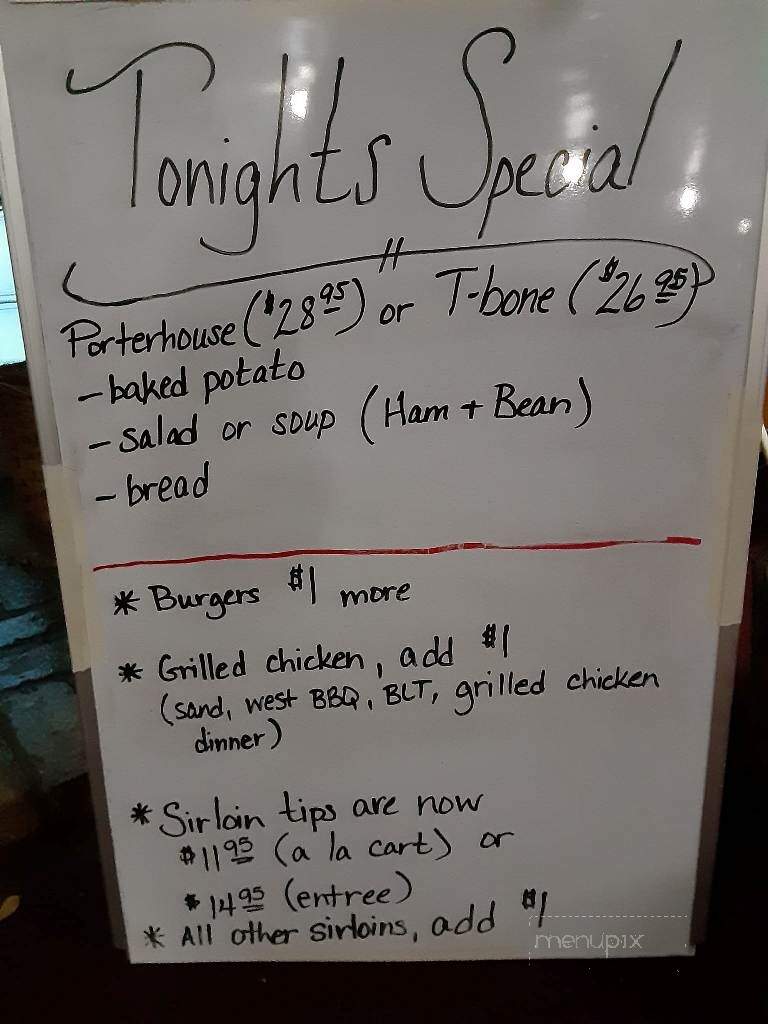 Tonights Special
Porterhouse ($28.95) or T-bone ($26.95)
- baked potato
- salad or soup (Ham + Bean)
- bread
* Burgers $1 more
* Grilled chicken, add $1
(sand, west BBQ, BLT, grilled chicken
dinner)
* Sirloin tips are now
$11.95 (a la cart) or
$14.95 (entree)
* All other sirloins, add $1
menupix